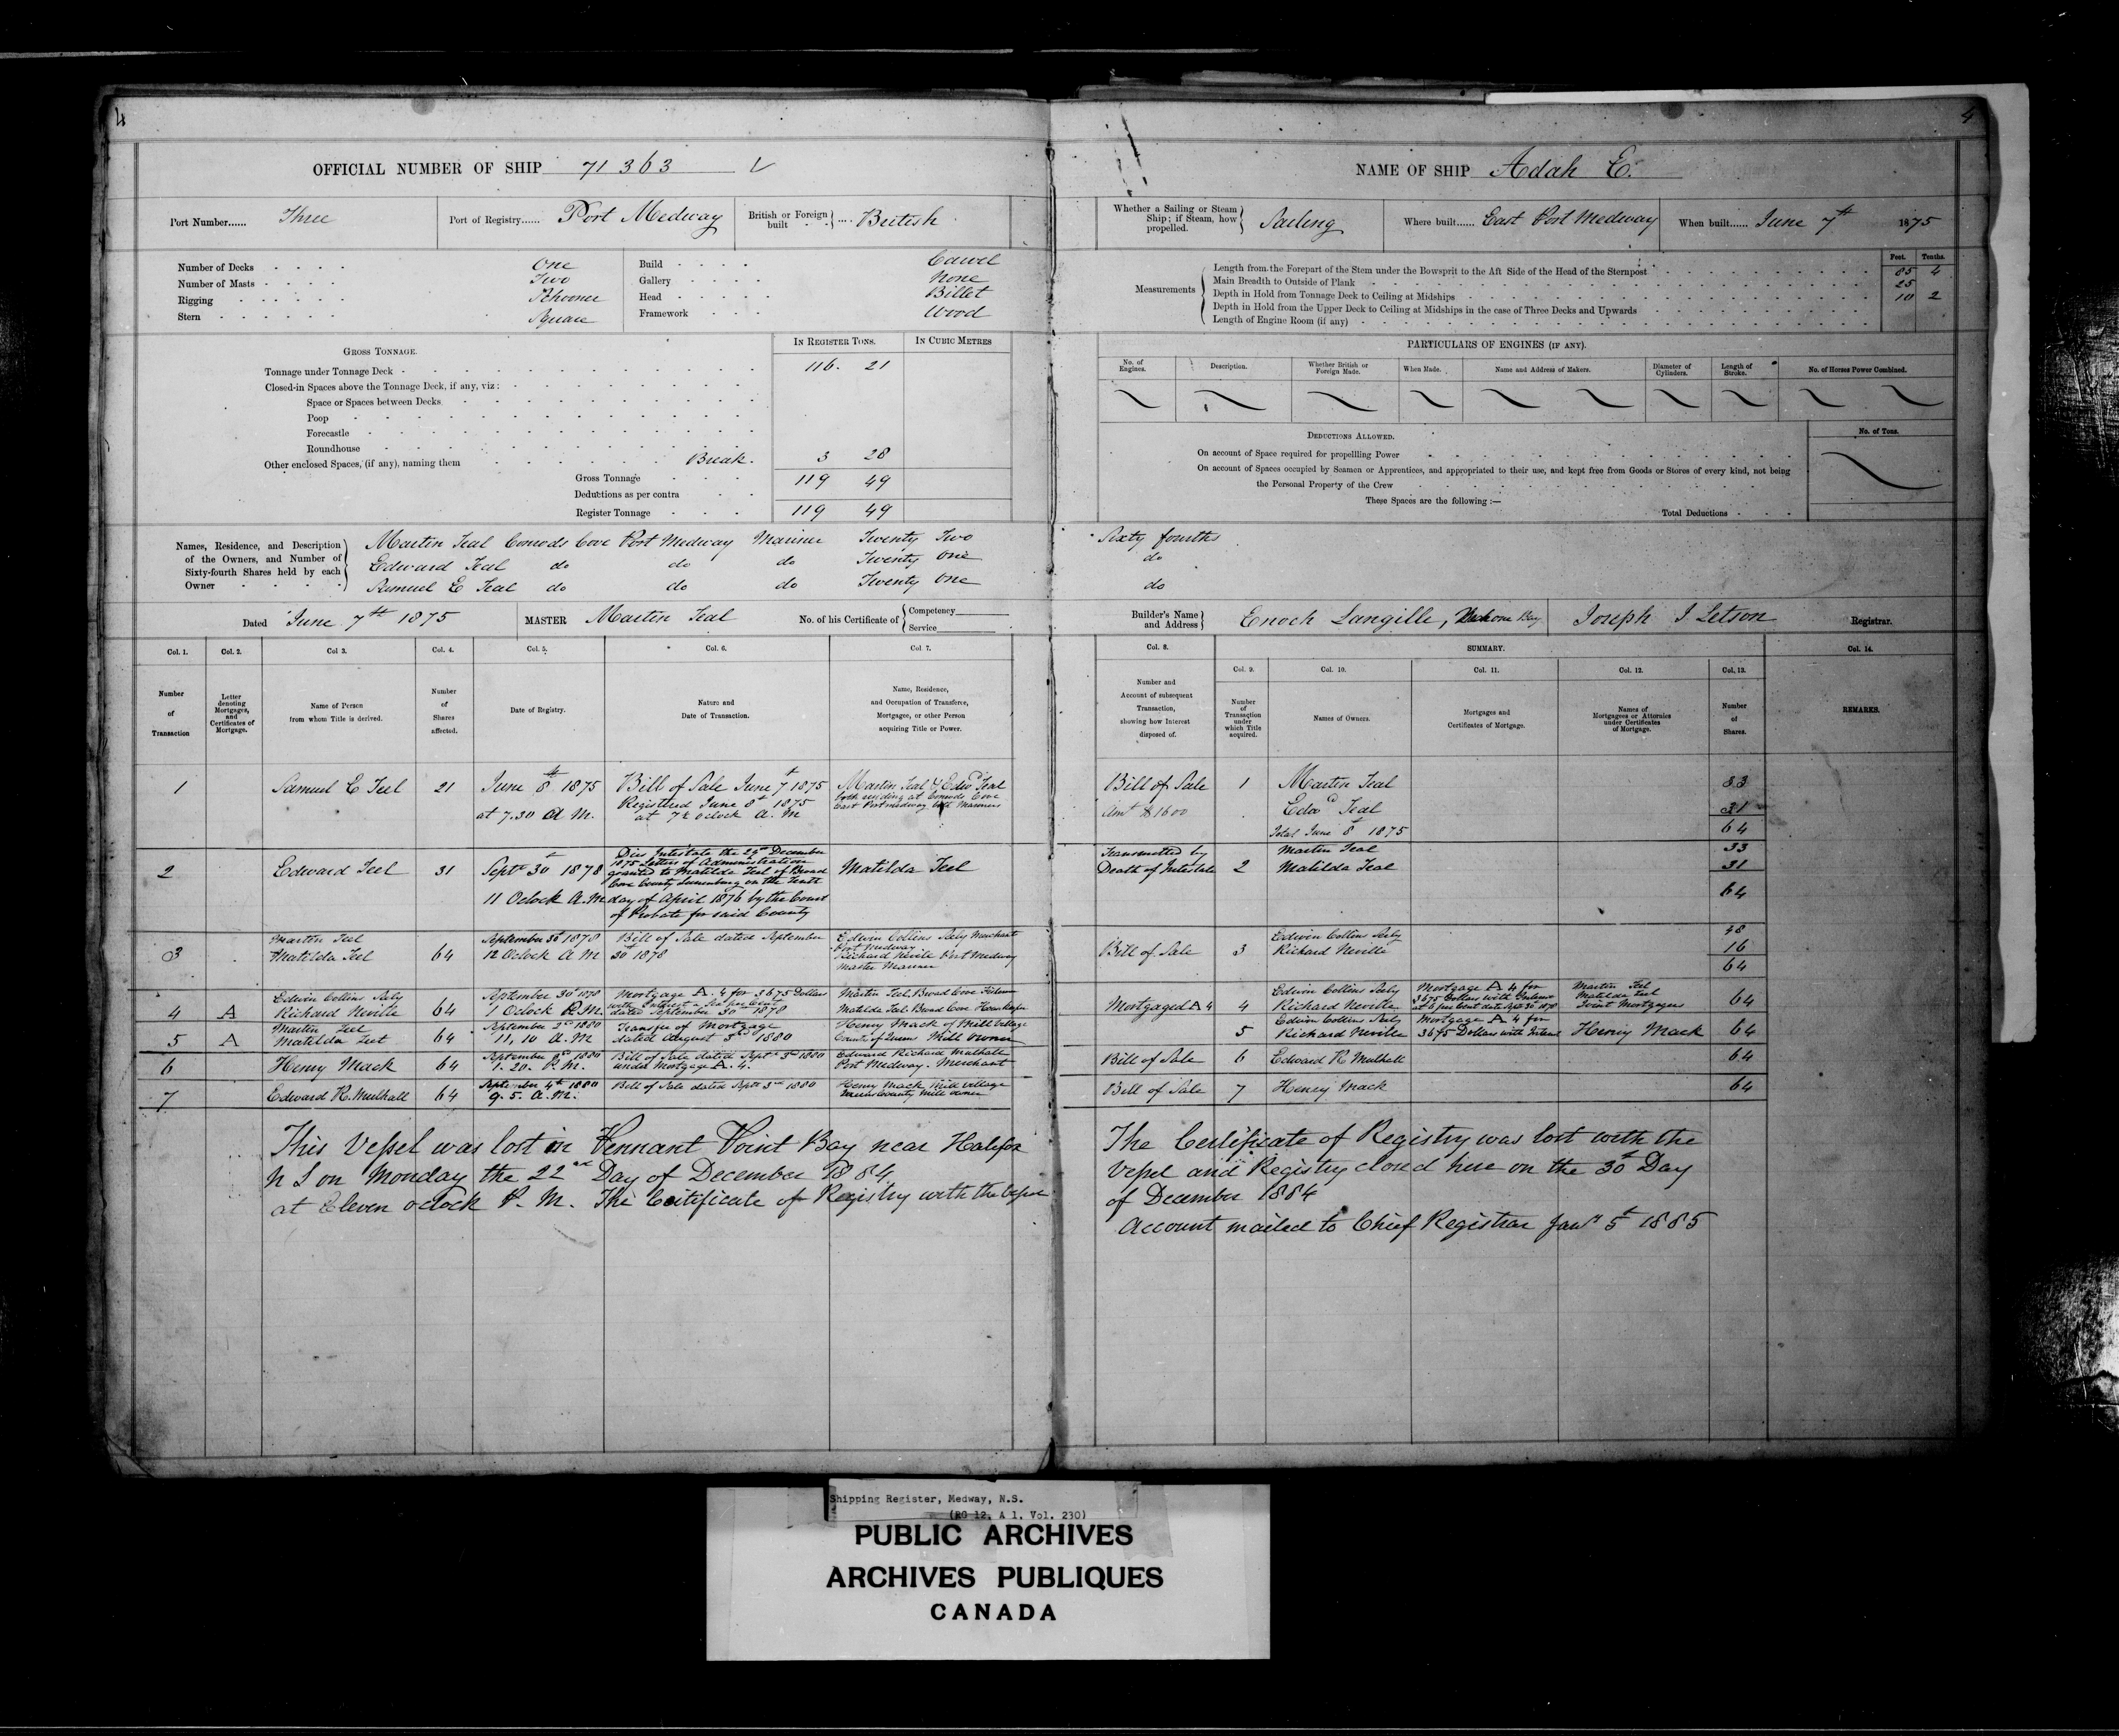 4
OFFICIAL NUMBER OF SHIP 71363
Port Number...... Three
Port of Registry...... Port Medway
British or Foreign built .... British
Number of Decks One
Number of Masts Two
Rigging Schooner
Stern Square
Build Carvel
Gallery None
Head Billet
Framework Wood
IN REGISTER TONS. IN CUBIC METRES
GROSS TONNAGE.
Tonnage under Tonnage Deck 116. 21
Closed-in Spaces above the Tonnage Deck, if any, viz:
Space or Spaces between Decks
Poop
Forecastle
Roundhouse
Other enclosed Spaces, (if any), naming them Break. 3 28
Gross Tonnage 119 49
Deductions as per contra
Register Tonnage 119 49
Names, Residence, and Description of the Owners, and Number of Sixty-fourth Shares held by each Owner
Martin Teal Conrods Cove Port Medway Mariner Twenty Two
Edward Teal do do do Twenty One
Samuel E Teal do do do Twenty One
Dated June 7th 1875
MASTER Martin Teal
No. of his Certificate of Competency Service
Col. 1. Col. 2. Col 3. Col. 4. Col. 5. Col. 6. Col. 7.
Number of Transaction
Letter denoting Mortgages, and Certificates of Mortgage.
Name of Person from whom Title is derived.
Number of Shares affected.
Date of Registry.
Nature and Date of Transaction.
Name, Residence, and Occupation of Transferee, Mortgagee, or other Person acquiring Title or Power.
1 Samuel E Teel 21
June 8th 1875
at 7.30 A M.
Bill of Sale June 7t 1875
Registered June 8t 1875
at 7½ oclock A. M
Martin Teal & Edwd Teal
both residing at Conrods Cove
East Portmedway both Mariners
2 Edward Teel 31
Septr 30t 1878
11 Oclock A.M
Dies Intestate the 29th December
1875 Letters of Administration
granted to Matilda Teal of Broad
Cove County Lunenburg on the Tenth
day of April 1876 by the Court
of Probate for said County
Matilda Teel
3 Martin Teel
Matilda Teel 64
September 30t 1878
12 Oclock A M
Bill of Sale dated September
30t 1878
Edwin Collins Seely Merchant
Port Medway
Richard Nevile Port Medway
Master Mariner
4 A Edwin Collins Seely
Richard Neville 64
September 30t 1878
1 Oclock P.M.
Mortgage A. 4 for 3675 Dollars
with Interest a Six per Cent
dated September 30th 1878
Martin Teel Broad Cove
Matilda Teel Broad Cove
5 A Martin Teel
Matilda Teel 64
September 2nd 1880
11, 10 A. M
Transfer of Mortgage
dated August 3rd 1880
Henry Mack of Mill Village
County of Queens Mill Owner
6 Henry Mack 64
September 3rd 1880
1. 20. P. M.
Bill of Sale dated Septr 3rd 1880
under Mortgage A. 4.
Edward Richard Mulhall
Port Medway. Merchant
7 Edward R. Mulhall 64
September 4th 1880
9. 5. A. M.
Bill of Sale dated Septr 3rd 1880
Henry Mack Mill Village
Queens County Mill owner
This Vessel was lost in Pennant Point Bay near Halifax
N S on Monday the 22nd Day of December 1884
at Eleven oclock P. M. The Certificate of Registry with the vessel
4
NAME OF SHIP Adah E.
Whether a Sailing or Steam Ship; if Steam, how propelled. Sailing
Where built...... East Port Medway
When built...... June 7th 1875
Feet. Tenths.
Measurements
Length from the Forepart of the Stem under the Bowsprit to the Aft Side of the Head of the Sternpost 85 4
Main Breadth to Outside of Plank 25
Depth in Hold from Tonnage Deck to Ceiling at Midships 10 2
Depth in Hold from the Upper Deck to Ceiling at Midships in the case of Three Decks and Upwards
Length of Engine Room (if any)
PARTICULARS OF ENGINES (IF ANY).
No. of Engines. Description. Whether British or Foreign Made. When Made. Name and Address of Makers. Diameter of Cylinders. Length of Stroke. No. of Horses Power Combined.
DEDUCTIONS ALLOWED. No. of Tons.
On account of Space required for propellling Power
On account of Spaces occupied by Seamen or Apprentices, and appropriated to their use, and kept free from Goods or Stores of every kind, not being
the Personal Property of the Crew
These Spaces are the following :—
Total Deductions
Sixty fourths
do
do
Builder's Name and Address Enoch Langille, Bay
Joseph I Letson Registrar.
Col. 8. SUMMARY. Col. 14.
Col. 9. Col. 10. Col. 11. Col. 12. Col. 13.
Number and Account of subsequent Transaction, showing how Interest disposed of.
Number of Transaction under which Title acquired.
Names of Owners.
Mortgages and Certificates of Mortgage.
Names of Mortgagees or Attornies under Certificates of Mortgage.
Number of Shares.
REMARKS.
Bill of Sale 1 Martin Teal 33
Amt $1600 Edwd Teal 31
Total June 8t 1875 64
Transmitted by
Death of Intestate 2
Martin Teal 33
Matilda Teal 31
64
Bill of Sale 3
Edwin Collins Seely 48
Richard Neville 16
64
Mortgaged A 4 4
Edwin Collins Seely
Richard Neville
Mortgage A 4 for
3675 Dollars with Interest
at 6 per Cent date Sept 30 1878
Martin Teel
Matilda Teel
Joint Mortgagees 64
5 Edwin Collins Seely
Richard Neville
Mortgage A 4 for
3675 Dollars with Interest
Henry Mack 64
Bill of Sale 6 Edward R Mulhall 64
Bill of Sale 7 Henry Mack 64
The Certificate of Registry was lost with the
Vessel and Registry closed here on the 30t Day
of December 1884
Account mailed to Chief Registrar Jany 5t 1885
Shipping Register, Medway, N.S.
(RG 12, A 1, Vol. 230)
PUBLIC ARCHIVES
ARCHIVES PUBLIQUES
CANADA